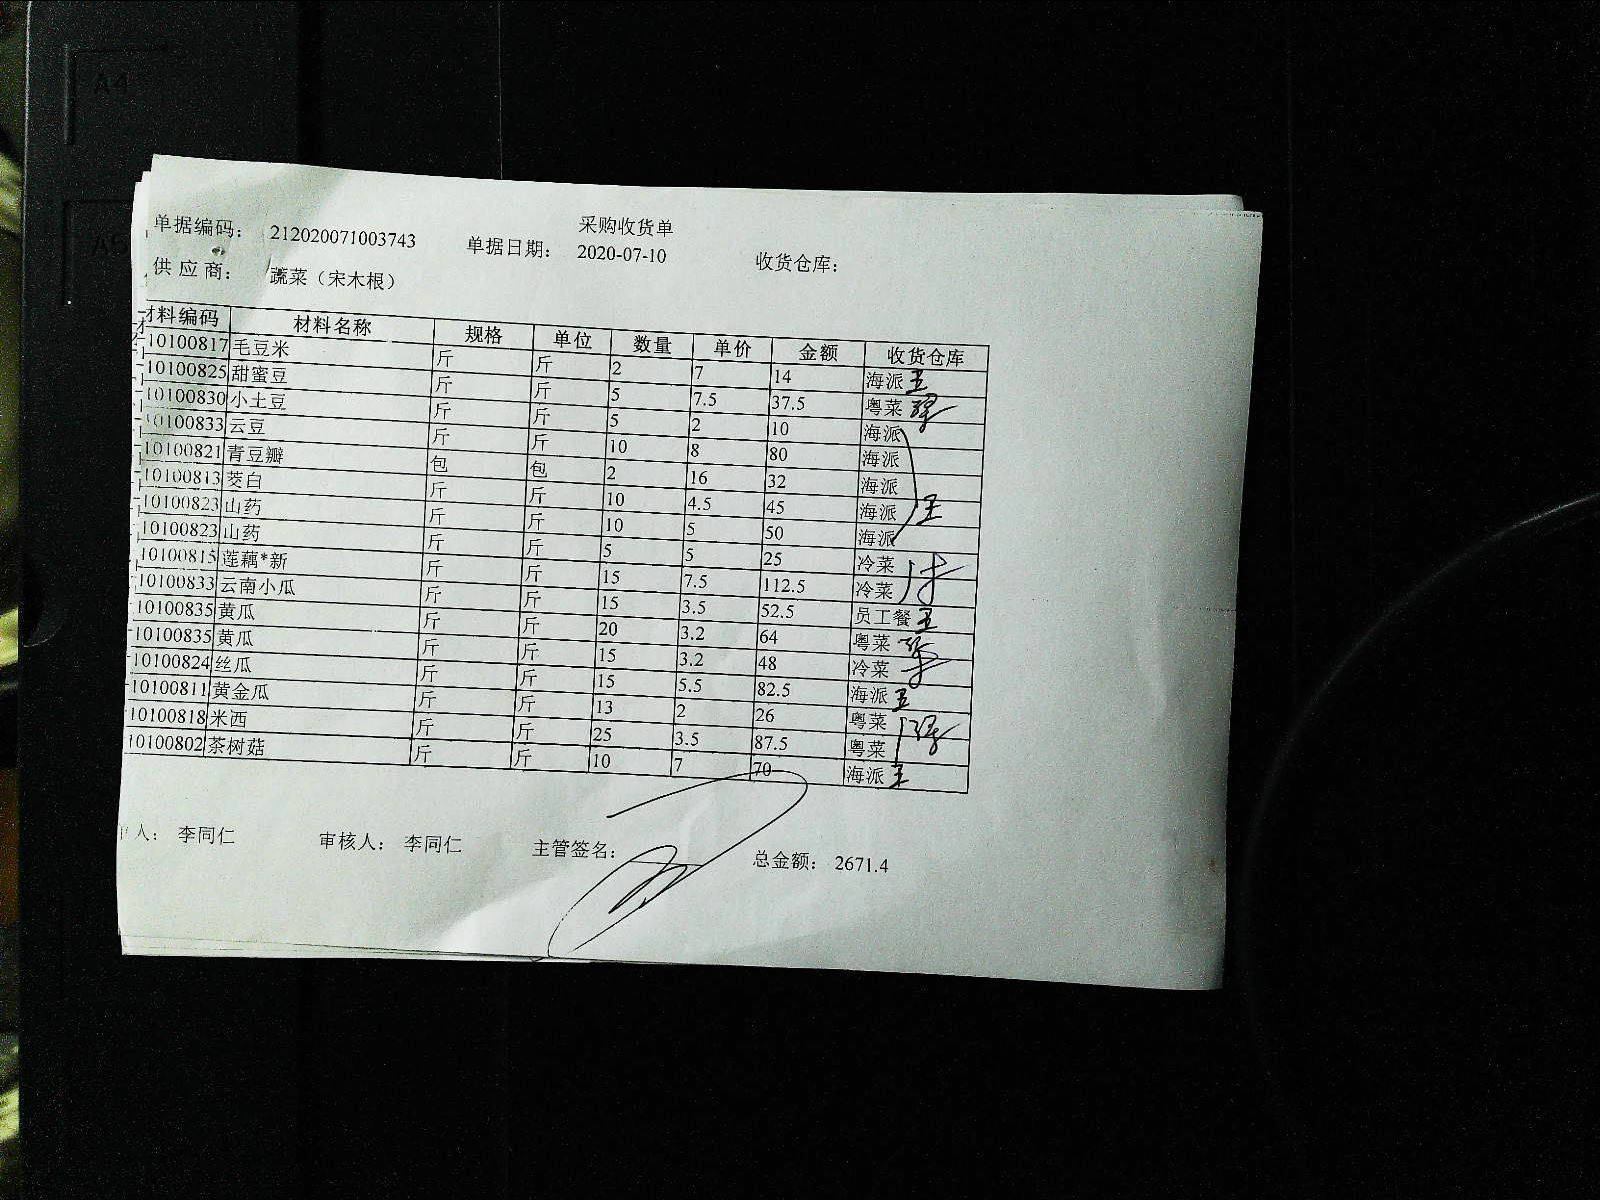 A4
A5
采购收货单
单据编码： 212020071003743 单据日期： 2020-07-10 收货仓库：
供 应 商： 蔬菜（宋木根）
材料编码 材料名称 规格 单位 数量 单价 金额 收货仓库
10100817 毛豆米 斤 斤 2 7 14 海派 王
10100825 甜蜜豆 斤 斤 5 7.5 37.5 粤菜
10100830 小土豆 斤 斤 5 2 10 海派
10100833 云豆 斤 斤 10 8 80 海派
10100821 青豆瓣 包 包 2 16 32 海派
10100813 茭白 斤 斤 10 4.5 45 海派 王
10100823 山药 斤 斤 10 5 50 海派
10100823 山药 斤 斤 5 5 25 冷菜
10100815 莲藕*新 斤 斤 15 7.5 112.5 冷菜
10100833 云南小瓜 斤 斤 15 3.5 52.5 员工餐 王
10100835 黄瓜 斤 斤 20 3.2 64 粤菜
10100835 黄瓜 斤 斤 15 3.2 48 冷菜
10100824 丝瓜 斤 斤 15 5.5 82.5 海派 王
10100811 黄金瓜 斤 斤 13 2 26 粤菜
10100818 米西 斤 斤 25 3.5 87.5 粤菜
10100802 茶树菇 斤 斤 10 7 70 海派 王
人： 李同仁 审核人： 李同仁 主管签名： 总金额： 2671.4